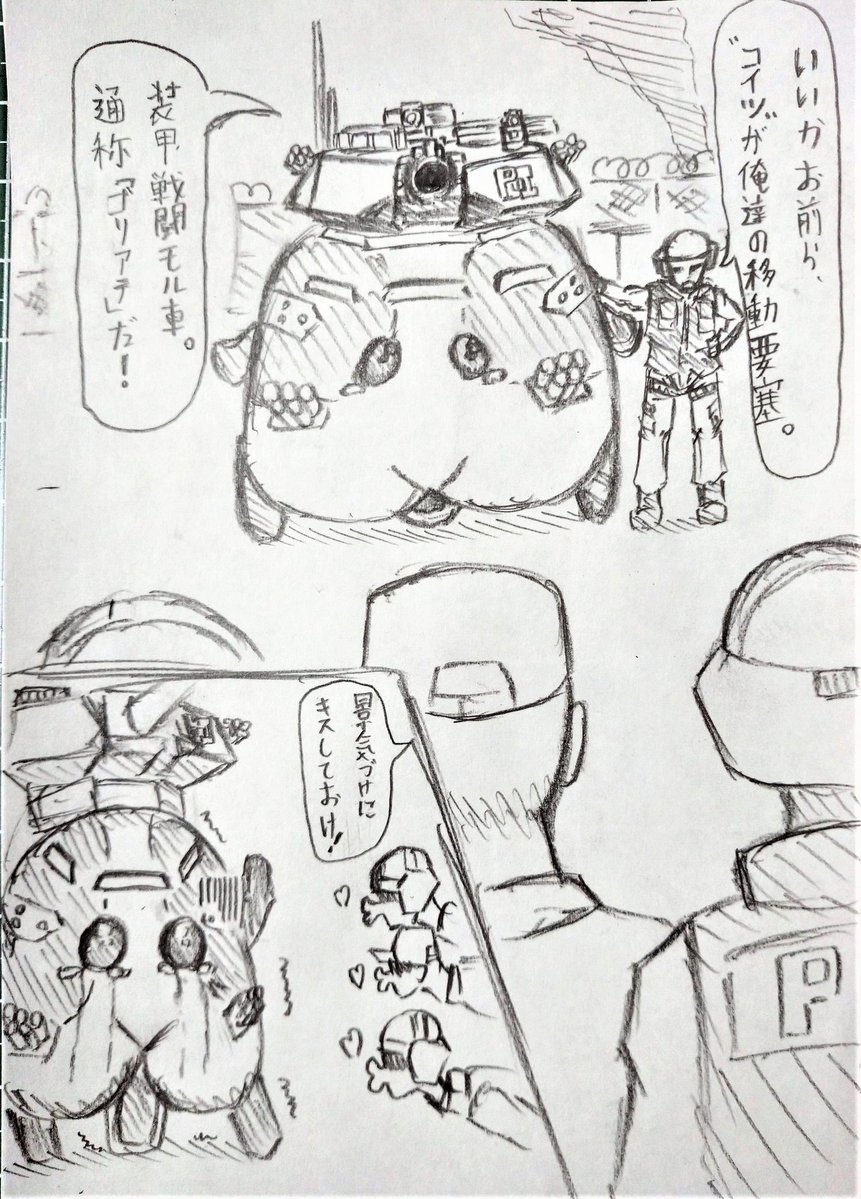 いいかお前ら、
"コイツ"が俺達の移動要塞。
装甲戦闘モル車。
通称「ゴリアテ」だ!
景気づけに
キスしておけ!